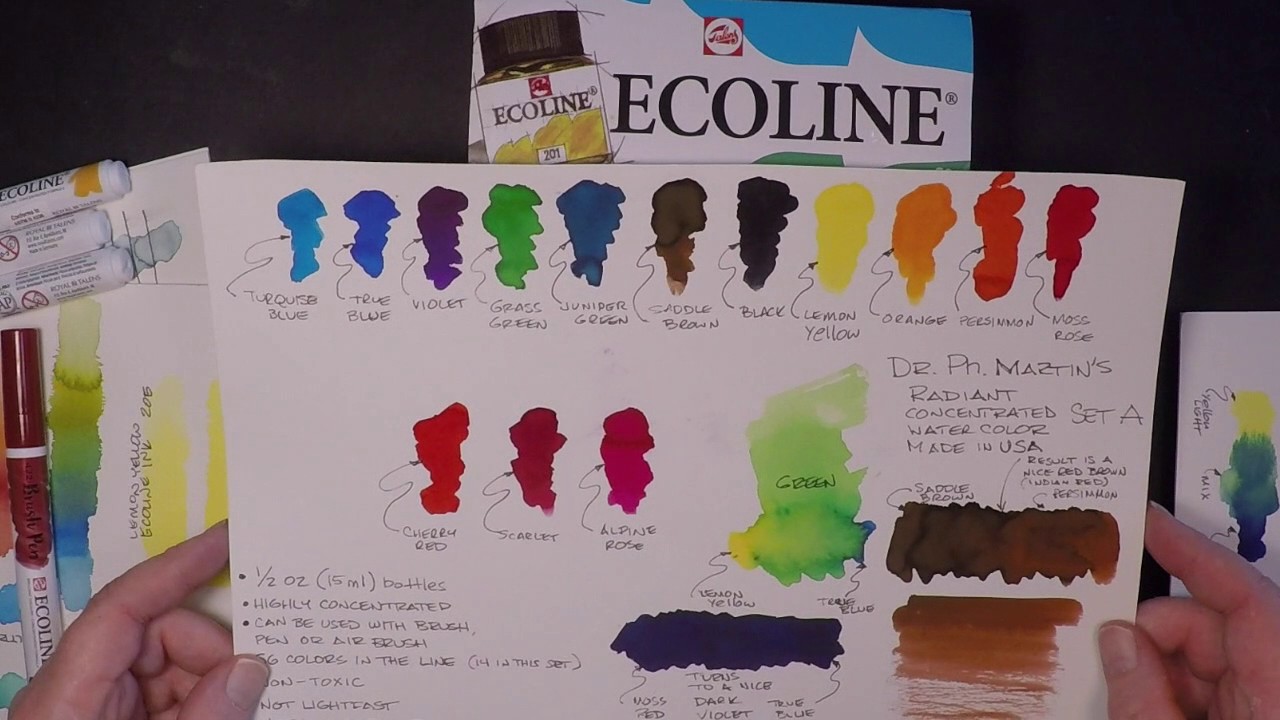 Talens
ECOLINE®
ECOLINE®
201
ECOLINE
ROYAL TALENS
ROYAL TALENS
TURQUISE
BLUE
TRUE
BLUE
VIOLET
GRASS
GREEN
JUNIPER
GREEN
SADDLE
BROWN
BLACK
LEMON
YELLOW
ORANGE
PERSIMMON
MOSS
ROSE
CHERRY
RED
SCARLET
ALPINE
ROSE
GREEN
LEMON
YELLOW
TRUE
BLUE
DR. PH. MARTIN'S
RADIANT
CONCENTRATED SET A
WATER COLOR
MADE IN USA
RESULT IS A
NICE RED BROWN
(INDIAN RED)
SADDLE
BROWN
PERSIMMON
• 1/2 OZ (15 ml) bottles
• HIGHLY CONCENTRATED
• CAN BE USED WITH BRUSH,
PEN OR AIR BRUSH
56 COLORS IN THE LINE (14 IN THIS SET)
NON-TOXIC
NOT LIGHTFAST
TURNS
TO A NICE
DARK
VIOLET
MOSS
RED
TRUE
BLUE
LEMON YELLOW 205
ECOLINE INK
Brush Pen
ECOLINE
YELLOW
LIGHT
MIX